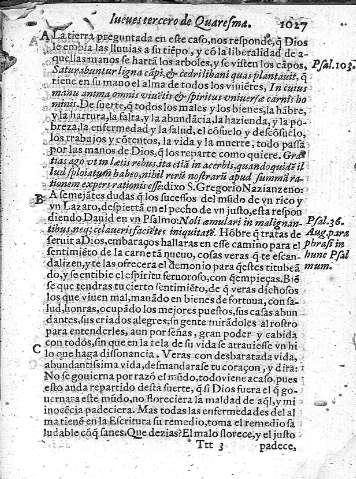 Iueues tercero de Quaresma.
1027
A La tierra preguntada en este caso, nos responde, q̃ Dios
le embia las lluuias a su tiẽpo, y cõ la liberalidad de a-
quellas manos se harta los arboles, y se visten los cãpos,
Psal. 103.
Saturabuntur ligna cãpi, & cedri libani quas plantauit, q̃
tiene en su mano el alma de todos los viuiẽtes, In cuius
manu anima omnis viuẽtis & spiritus vniuersæ carnis ho
minis. De suerte, q̃ todos los males y los bienes, la hãbre,
y la hartura, la falta, y la abundãcia, la hazienda, y la po-
breza, la enfermedad y la salud, el cõsuelo y descõsuelo,
los trabajos y cõtentos, la vida y la muerte, todo passa
por las manos de Dios, q̃ los reparte como quiere. Gra
tias ago vt in lætis rebus, ita etiã in acerbis, quandoquidẽ il
lud exploratum habeo, nihil rerũ nostrarũ apud summã ra-
tionem expers rationis esse: dixo S. Gregorio Nazianzeno.
B A semejãtes dudas a los sucessos del mũdo de vn rico y
vn Lazaro, despierta en el pecho de vn justo, esta respon
diendo Dauid en vn Psalmo: Noli æmulari in malignan-
Psal. 36.
tibus, neq; zelaueri faciẽtes iniquitatẽ. Hõbre q̃ tratas de
Aug. para
seruir a Dios, embaraços hallaras en esse camino para el
phrasi in
sentimiẽto de la carne tã nueuo, cosas veras q̃ te escan-
hunc Psal
dalizen, y te las ofrecera el demonio para q̃ estes titubeã
mum.
do, y se entibie el espiritu feruoroso, con q̃ empieças. Biẽ
se que tendras tu cierto sentimiẽto, de q̃ veras dichosos
los que viuen mal, manãdo en bienes de fortuna, con sa-
lud, honras, ocupãdo los mejores puestos, sus casas abun
dantes, sus criados alegres, la gente mirãdoles al rostro
para entenderles, aun por señas, gran poder y cabida
con todos, sin que en la tela de su vida se atrauiesse vn hi
C lo que haga dissonancia. Veras con desbaratada vida,
abundantissima vida, desmandarase tu coraçon, y dira:
No se gouierna por razõ el mũdo, todo viene acaso, pues
esto anda repartido desta suerte, q̃ si Dios fuera el q̃ go-
uernara este mũdo, no floreciera la maldad de aql, y mi
inocẽcia padeciera. Mas todas las enfermedades del al
ma tienẽ en la Escritura su remedio, toma el remedio sa
ludable cõ q̃ sanes. Que dezias? El malo florece, y el justo
Ttt 3
padece,